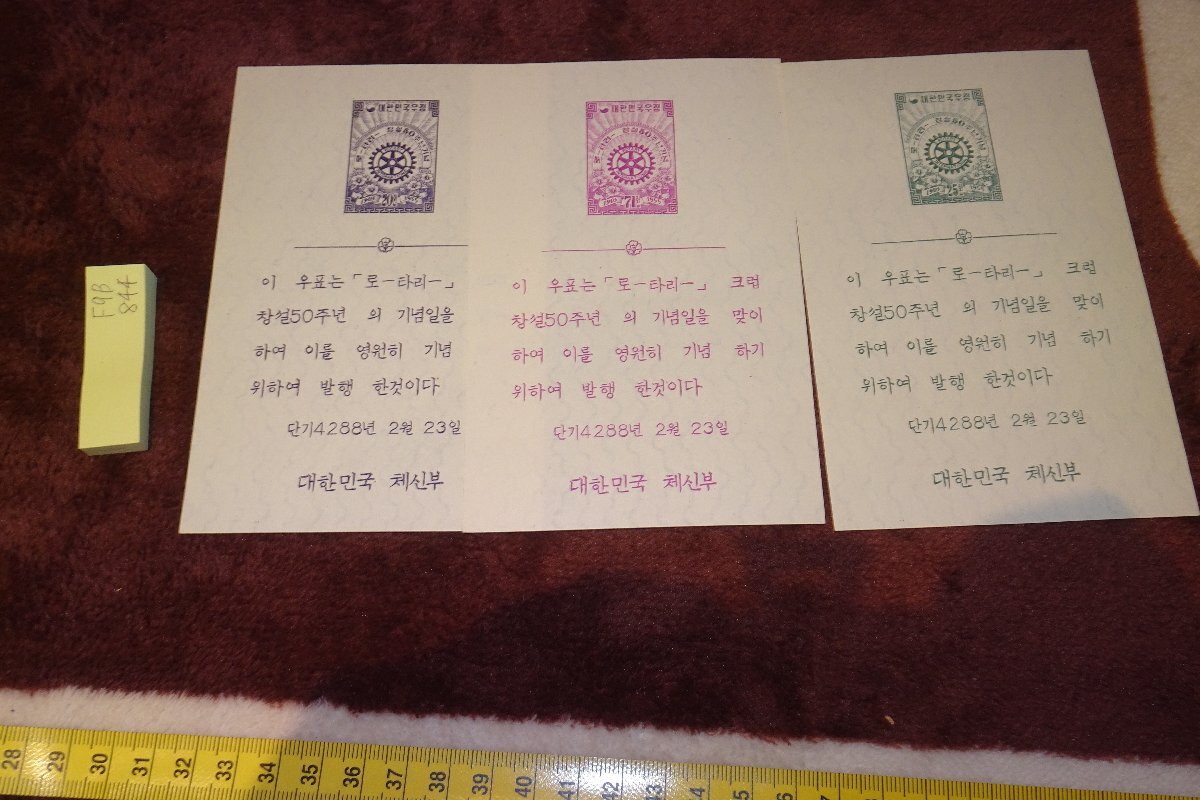 F9B
844
대한민국우정
로-타리- 창설50주년기념
1905 80 1955
이 우표는 「로-타리-」
창설50주년 의 기념일을
하여 이를 영원히 기념
위하여 발행 한것이다
단기4288년 2월 23일
대한민국 체신부
대한민국우정
로-타리- 창설50주년기념
1905 71 1955
이 우표는 「로-타리-」 크럽
창설50주년 의 기념일을 맞이
하여 이를 영원히 기념 하기
위하여 발행 한것이다
단기4288년 2월 23일
대한민국 체신부
대한민국우정
로-타리- 창설50주년기념
1905 25 1955
이 우표는 「로-타리-」 크럽
창설50주년 의 기념일을 맞이
하여 이를 영원히 기념 하기
위하여 발행 한것이다
단기4288년 2월 23일
대한민국 체신부
28 29 30 31 32 33 34 35 36 37 38 39 40 41 42 43